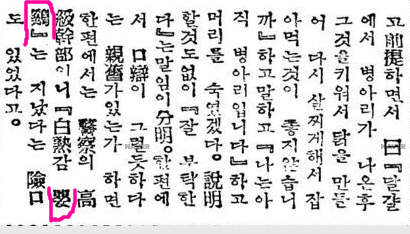 고前提하면서 曰『달걀
에서 병아리가 나온후
그것을키워서 닭을 만들
어 다시 살찌게해서 잡
아먹는것이 좋지않습니
까』하고말하고『나는아
직 병아리입니다』하고
머리를 숙였겠다。說明
할것도없이『잘 부탁한
다』는말임이分明。한편에
서 口辯이 그럴듯하다
는 親舊가있는가 하면
한편에서는 警察의 高
級幹部이니『白熱감 嬰
鷄』는 지났다는 險口
도 있었다고。